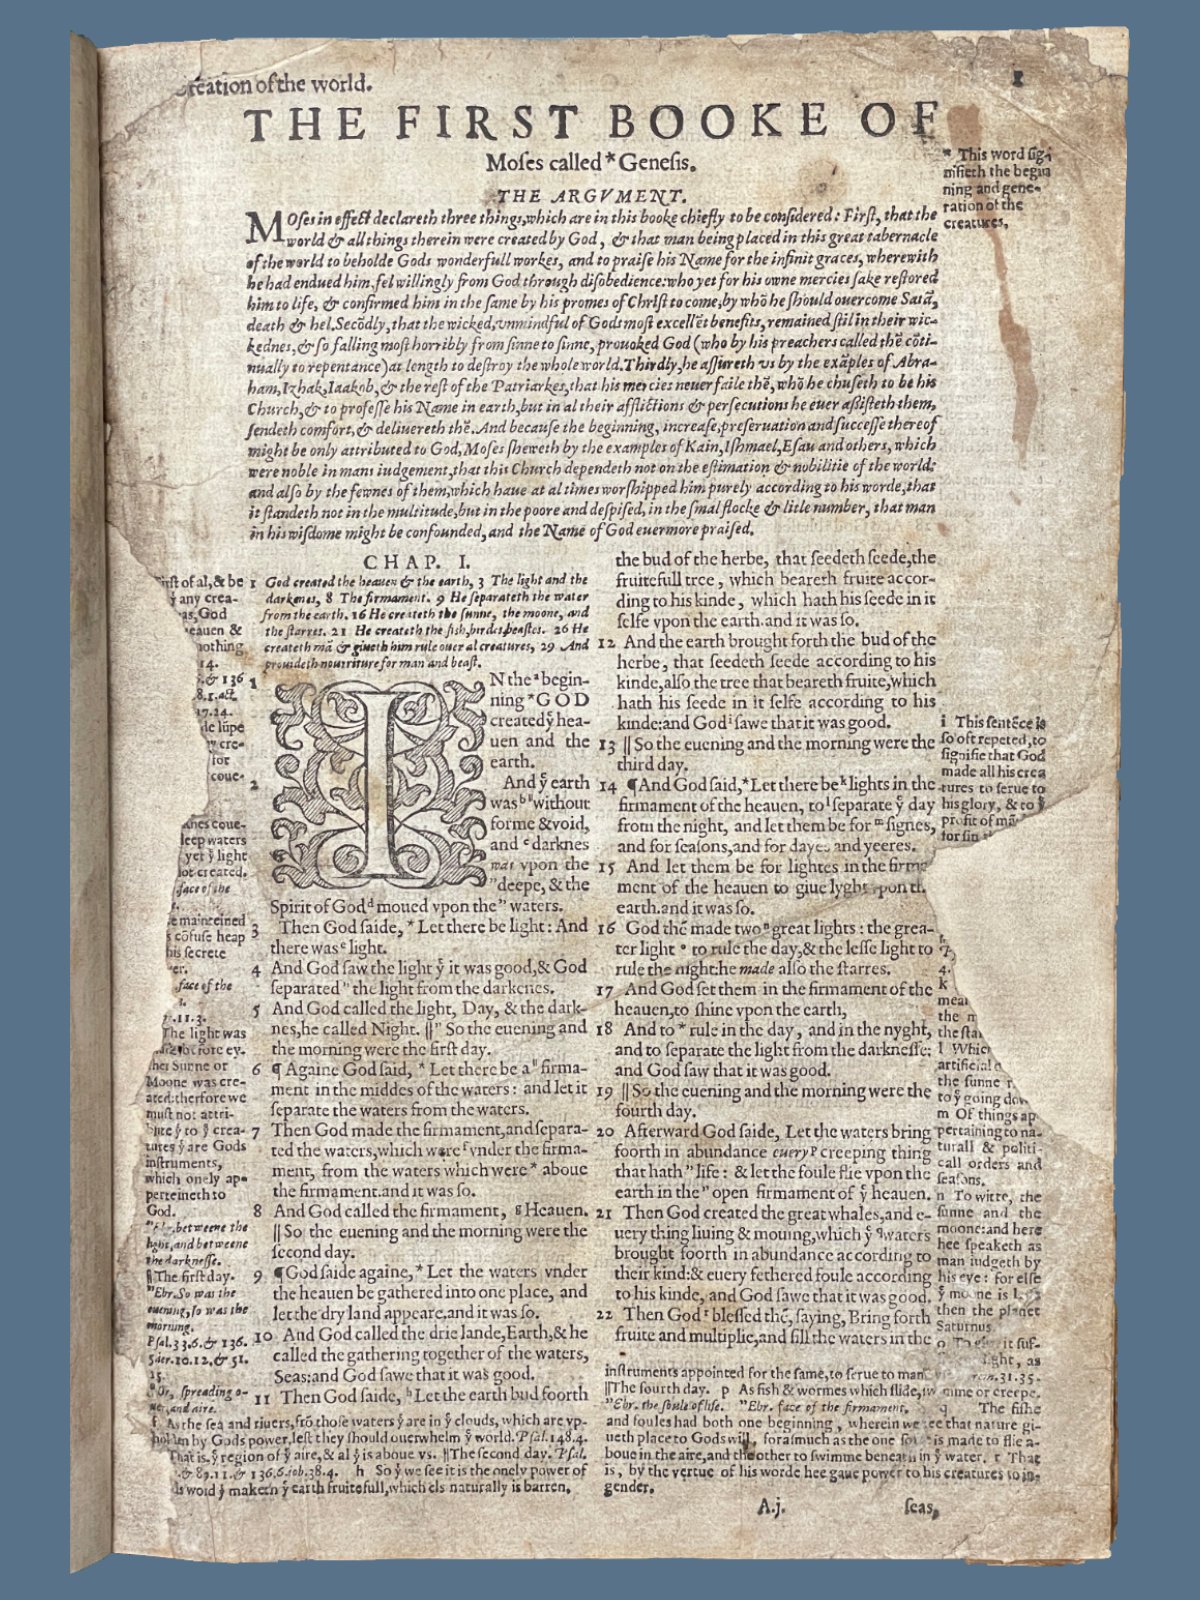 reation of the world.
THE FIRST BOOKE OF
Moſes called * Geneſis.
THE ARGVMENT.
Moſes in effect declareth three things, which are in this booke chiefly to be conſidered: Firſt, that the
world & all things therein were created by God, & that man being placed in this great tabernacle
of the world to beholde Gods wonderfull workes, and to praiſe his Name for the infinit graces, wherewith
he had endued him, fel willingly from God through diſobedience: who yet for his owne mercies ſake reſtored
him to life, & confirmed him in the ſame by his promes of Chriſt to come, by whō he ſhould ouercome Satā,
death & hel. Secōdly, that the wicked, vnmindful of Gods moſt excellēt benefits, remained ſtil in their wic-
kednes, & ſo falling moſt horribly from ſinne to ſinne, prouoked God (who by his preachers called thē cōti-
nually to repentance) at length to deſtroy the whole world. Thirdly, he aſſureth vs by the exāples of Abra-
ham, Izhak, Iaakob, & the reſt of the Patriarkes, that his mercies neuer faile thē, whō he chuſeth to be his
Church, & to profeſſe his Name in earth, but in al their afflictions & perſecutions he euer aßiſteth them,
ſendeth comfort, & deliuereth thē. And becauſe the beginning, increaſe, preſeruation and ſucceſſe thereof
might be only attributed to God, Moſes ſheweth by the examples of Kain, Iſhmael, Eſau and others, which
were noble in mans iudgement, that this Church dependeth not on the eſtimation & nobilitie of the world:
and alſo by the fewnes of them, which haue at al times worſhipped him purely according to his worde, that
it ſtandeth not in the multitude, but in the poore and deſpiſed, in the ſmal flocke & litle number, that man
in his wiſdome might be confounded, and the Name of God euermore praiſed.
* This word ſig-
nifieth the begin
ning and gene-
ration of the
creatures.
CHAP. I.
1 God created the heauen & the earth, 3 The light and the
darkenes, 8 The firmament. 9 He ſeparateth the water
from the earth. 16 He createth the ſunne, the moone, and
the ſtarres. 21 He createth the fiſh, birdes, beaſtes. 26 He
createth mā & giueth him rule ouer al creatures, 29 And
prouideth nourriture for man and beaſt.
1 IN the ᵃ begin-
ning * GOD
created ẏ hea-
uen and the
earth.
2 And ẏ earth
was ᵇ " without
forme & void,
and ᶜ darknes
was vpon the
" deepe, & the
Spirit of God ᵈ moued vpon the " waters.
3 Then God ſaide, * Let there be light: And
there was ᵉ light.
4 And God ſaw the light ẏ it was good, & God
ſeparated " the light from the darkenes.
5 And God called the light, Day, & the dark-
nes, he called Night. ‖ " So the euening and
the morning were the firſt day.
6 ¶ Againe God ſaid, * Let there be a " firma-
ment in the middes of the waters: and let it
ſeparate the waters from the waters.
7 Then God made the firmament, and ſepara-
ted the waters, which were ᶠ vnder the firma-
ment, from the waters which were * aboue
the firmament. and it was ſo.
8 And God called the firmament, ᵍ Heauen.
‖ So the euening and the morning were the
ſecond day.
9 ¶ God ſaide againe, * Let the waters vnder
the heauen be gathered into one place, and
let the dry land appeare. and it was ſo.
10 And God called the drie lande, Earth, & he
called the gathering together of the waters,
Seas: and God ſawe that it was good.
11 Then God ſaide, ʰ Let the earth bud foorth
the bud of the herbe, that ſeedeth ſeede, the
fruitefull tree, which beareth fruite accor-
ding to his kinde, which hath his ſeede in it
ſelfe vpon the earth. and it was ſo.
12 And the earth brought forth the bud of the
herbe, that ſeedeth ſeede according to his
kinde, alſo the tree that beareth fruite, which
hath his ſeede in it ſelfe according to his
kinde: and God ⁱ ſawe that it was good.
13 ‖ So the euening and the morning were the
third day.
14 ¶ And God ſaid, * Let there be ᵏ lights in the
firmament of the heauen, to ˡ ſeparate ẏ day
from the night, and let them be for ᵐ ſignes,
and for ſeaſons, and for dayes and yeeres.
15 And let them be for lightes in the firma
ment of the heauen to giue lyght vpon th
earth. and it was ſo.
16 God thē made two ⁿ great lights: the grea-
ter light ᵒ to rule the day, & the leſſe light to
rule the night: he made alſo the ſtarres.
17 And God ſet them in the firmament of the
heauen, to ſhine vpon the earth,
18 And to * rule in the day, and in the nyght,
and to ſeparate the light from the darkneſſe:
and God ſaw that it was good.
19 ‖ So the euening and the morning were the
fourth day.
20 Afterward God ſaide, Let the waters bring
foorth in abundance euery ᵖ creeping thing
that hath " life: & let the foule flie vpon the
earth in the " open firmament of ẏ heauen.
21 Then God created the great whales, and e-
uery thing liuing & mouing, which ẏ ᑫ waters
brought foorth in abundance according to
their kind: & euery fethered foule according
to his kinde, and God ſaw that it was good.
22 Then God ʳ bleſſed thē, ſaying, Bring forth
fruite and multiplie, and fill the waters in the
Firſt of al, & be
ẏ any crea-
as, God
eauen &
nothing
14.
& 136
8.1. act.
17.24.
de lūpe
cre-
for
coue-
knes coue-
deep waters
yet ẏ light
not created.
face of the
e mainteined
s cōfuſe heap
his ſecrete
er.
face of the
11.3.
The light was
before ey-
ther Sunne or
Moone was cre-
ated: therfore we
muſt not attri-
bute ẏ to ẏ crea-
tures ẏ are Gods
inſtruments,
which onely ap-
perteineth to
God.
" Ebr. betweene the
light, and betweene
the darkneſſe.
‖ The firſt day.
" Ebr. So was the
euening, ſo was the
morning.
Pſal. 33.6. & 136.
5. ier. 10.12, & 51.
15.
" Or, ſpreading o-
uer, and aire.
f As the ſea and riuers, frō thoſe waters ẏ are in ẏ clouds, which are vp-
holden by Gods power, leſt they ſhould ouerwhelm ẏ world. Pſal. 148.4.
That is, ẏ region of ẏ aire, & al ẏ is aboue vs. ‖ The ſecond day. Pſal.
& 89.11. & 136.6. iob. 38.4. h So ẏ we ſee it is the onely power of
ds word ẏ maketh ẏ earth fruitefull, which els naturally is barren.
i This ſentēce is
ſo oft repeted, to
ſignifie that God
made all his crea
tures to ſerue to
his glory, & to ẏ
profit of mā
for ſin
4.
k
mea
the
the ſta
l Whic
artificial
the ſunne
to ẏ going do
m Of things ap
pertaining to na-
turall & politi-
call orders and
ſeaſons.
n To witte, the
ſunne and the
moone: and here
hee ſpeaketh as
man iudgeth by
his eye: for elſe
ẏ moone is l
then the planet
Saturnus
o To giue it ſuf-
light, as
inſtruments appointed for the ſame, to ſerue to man
31.35.
‖ The fourth day. p As fiſh & wormes which ſlide, ſwimme or creepe.
" Ebr. the ſoule of life. " Ebr. face of the firmament. q The fiſhe
and foules had both one beginning, wherein we ſee that nature gi-
ueth place to Gods will, foraſmuch as the one ſort is made to flie a-
boue in the aire, and the other to ſwimme beneath in ẏ water. r That
is, by the vertue of his worde hee gaue power to his creatures to in-
gender.
A.j. ſeas,